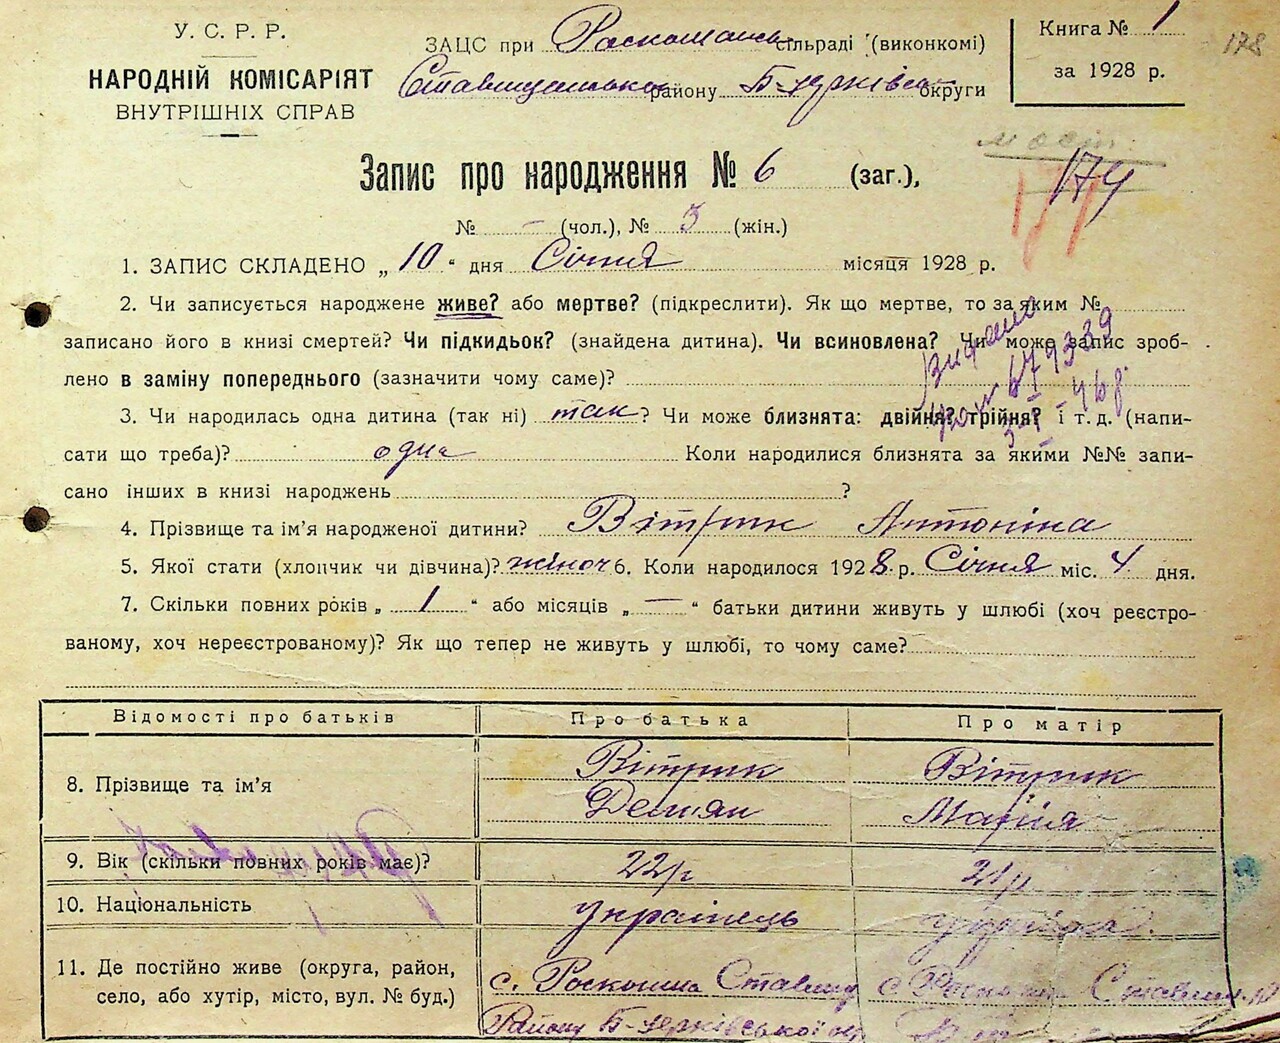 У. С. Р. Р.
НАРОДНІЙ КОМІСАРІЯТ
ВНУТРІШНІХ СПРАВ
ЗАЦС при Роскошанс. сільраді (виконкомі)
Ставищенсько району Б-церківс. округи
Книга № 1
за 1928 р.
178
мост.
174
Запис про народження № 6 (заг.),
№ — (чол.), № 3 (жін.)
1. ЗАПИС СКЛАДЕНО „ 10 “ дня Січня місяця 1928 р.
2. Чи записується народжене живе? або мертве? (підкреслити). Як що мертве, то за яким №
записано його в книзі смертей? Чи підкидьок? (знайдена дитина). Чи всиновлена? Чи може запис зроб-
лено в заміну попереднього (зазначити чому саме)?
3. Чи народилась одна дитина (так ні) так? Чи може близнята: двійня? трійня? і т. д. (напи-
сати що треба)? одна Коли народилися близнята за якими №№ запи-
сано інших в книзі народжень ?
4. Прізвище та ім’я народженої дитини? Вітрик Антоніна
5. Якої стати (хлопчик чи дівчина)? жіноч 6. Коли народилося 1928 р. Січня міс. 4 дня.
7. Скільки повних років „ 1 “ або місяців „ — “ батьки дитини живуть у шлюбі (хоч реєстро-
ваному, хоч нереєстрованому)? Як що тепер не живуть у шлюбі, то чому саме?
Відомості про батьків Про батька Про матір
8. Прізвище та ім’я
Вітрик Вітрик
Демян Марія
9. Вік (скільки повних років має)? 22р 21р
10. Національність українець
11. Де постійно живе (округа, район,
село, або хутір, місто, вул. № буд.)
с. Роскошна Ставищ с Роскошна Ставищ.
Району Б-церківської